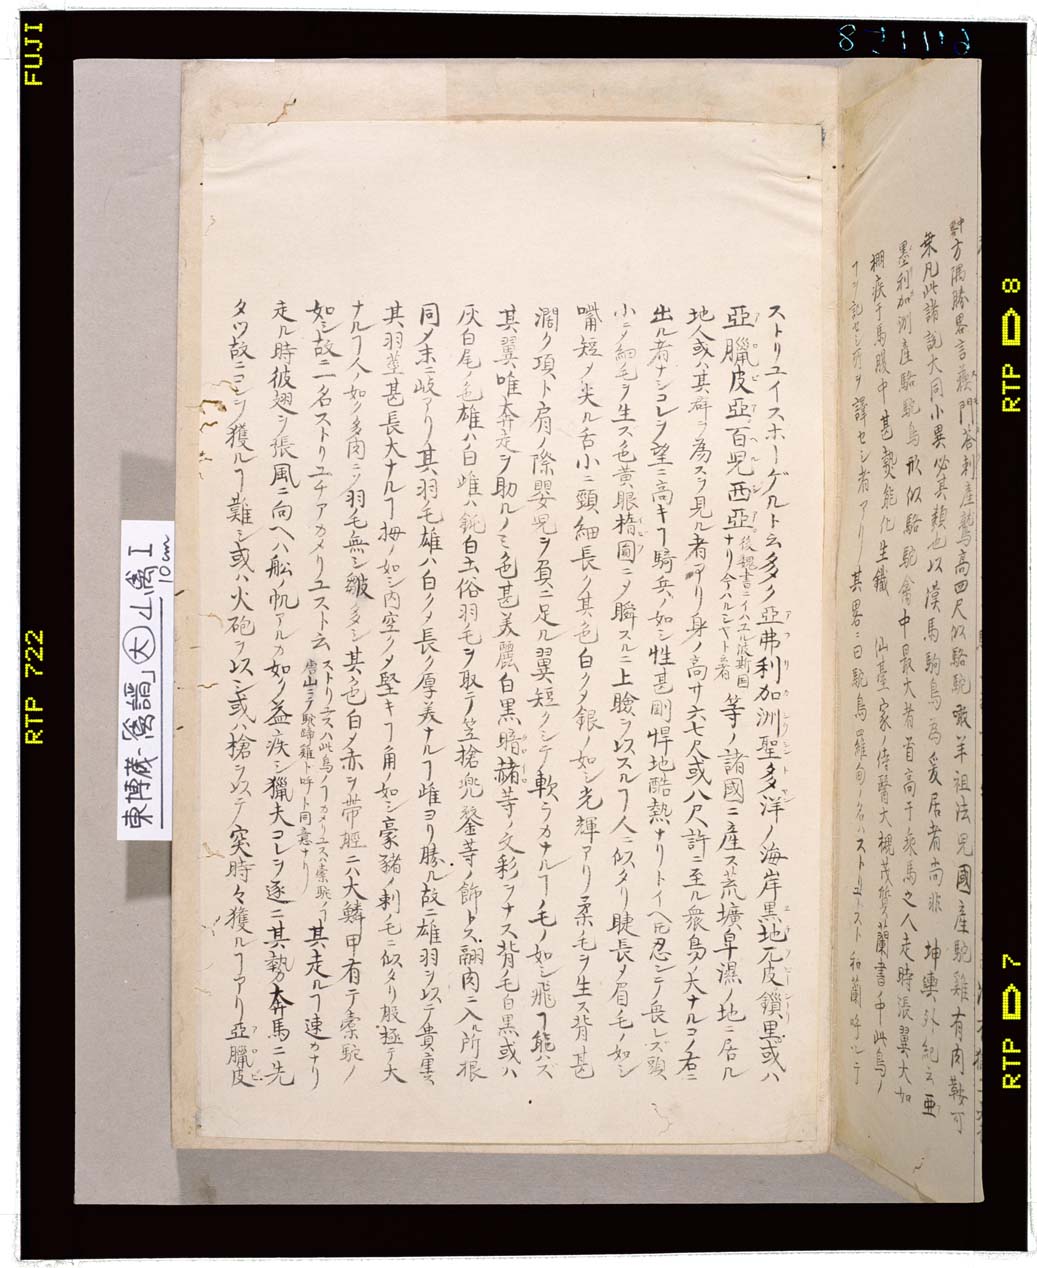 野方隅勝畧言蘓門荅刺産鷲高四尺似駱駝噉羊祖法児國産駝雞有肉鞍可
乗凡此諸説大同小異必其類也以漢馬駒鳥為爰居者尚非 坤輿外紀云亜
墨利加洲産駱駝鳥形似駱駝禽中最大者首高于乗馬之人走時張翼大如
棚疾于馬腹中甚熱能化生鐵 仙臺家ノ侍醫大槻茂質蘭書中此鳥ノ
ヿヲ記セシ所ヲ譯セシ者アリ 其畧ニ曰駝鳥羅甸ノ名ハストリユトスト和蘭呼シテ
ストリユイスホーゲルト云多ク亞弗利加洲聖多洋ノ海岸黒地兀皮鎖黒或ハ
亞臘皮亞百児西亞ナリ後魏書ニイハユル波斯國今ハルシヤト云者等ノ諸國ニ産ス荒壙卑濕ノ地ニ居ル
地人或ハ其群ヲ為スヲ見ル者アリ身ノ高サ六七尺或ハ八尺許ニ至ル衆鳥ノ大ナルコノ右ニ
出ル者ナシコレヲ望ニ高キヿ騎兵ノ如シ性甚剛悍地酷熱ナリトイヘ𪜈忍ンテ畏レズ頭
小ニノ細毛ヲ生ス色黄眼楕圓ニメ瞬スルニ上瞼ヲ以スルヿ人ニ似タリ睫長メ眉毛ノ如シ
嘴短メ尖ル舌小ニ頸細長ク其色白クメ銀ノ如シ光輝アリノ柔毛ヲ生ス背甚
濶ク項ト肩ノ際嬰児ヲ負ニ足ル翼短クシテ軟ラカナルヿノ毛ノ如シ飛ヿ能ハズ
其翼唯奔走ヲ助ルノミ色甚美麗白黒暗赭等ノ文彩ヲナス背毛白黒或ハ
灰白尾ノ色雄ハ白雌ハ鈍白土俗羽毛ヲ取テ笠槍兜鍪等ノ飾トス翮肉ニ入ル所根
同メ末ニ岐アリ其羽毛雄ハ白クメ長ク厚美ナルヿ雌ヨリ勝ル故ニ雄羽ヲ以テ貴重ス
其羽莖甚長大ナルヿ拇ノ如シ内空クメ堅キヿ角ノ如シ豪豬ノ刺ノ毛ニ似タリ股極テ大
ナルヿ人ノ如ク多肉ニメ羽毛無シ皺多シ其色白メ赤ヲ帯脛ニハ大鱗甲有テ槖駝ノ
如シ故ニ一名ストリユチアカメリユスト云ストリユスハ此鳥ノヿカメリユスハ槖駝ノヿ唐山ニテ駝蹄雞ト呼ト同意ナリ其走ルヿ速カナリ
走ル時彼翅ヲ張風ニ向ヘハ船ノ帆アルカ如ク益疾シ獵夫コレヲ逐ニ其勢奔馬ニ先
タツ故ニコレヲ獲ルヿ難シ或ハ火砲ヲ以シ或ハ槍ヲ以テ突時々獲ルヿアリ亞臘皮
東博蔵「禽譜」大-山禽 I
10cm
FUJI
RTP 722
RTP 8
RTP 7